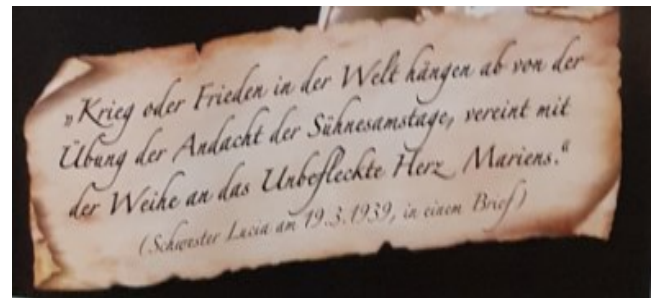 „Krieg oder Frieden in der Welt hängen ab von der
Übung der Andacht der Sühnesamstage, vereint mit
der Weihe an das Unbefleckte Herz Mariens.“
(Schwester Lucia am 19.3.1939, in einem Brief)